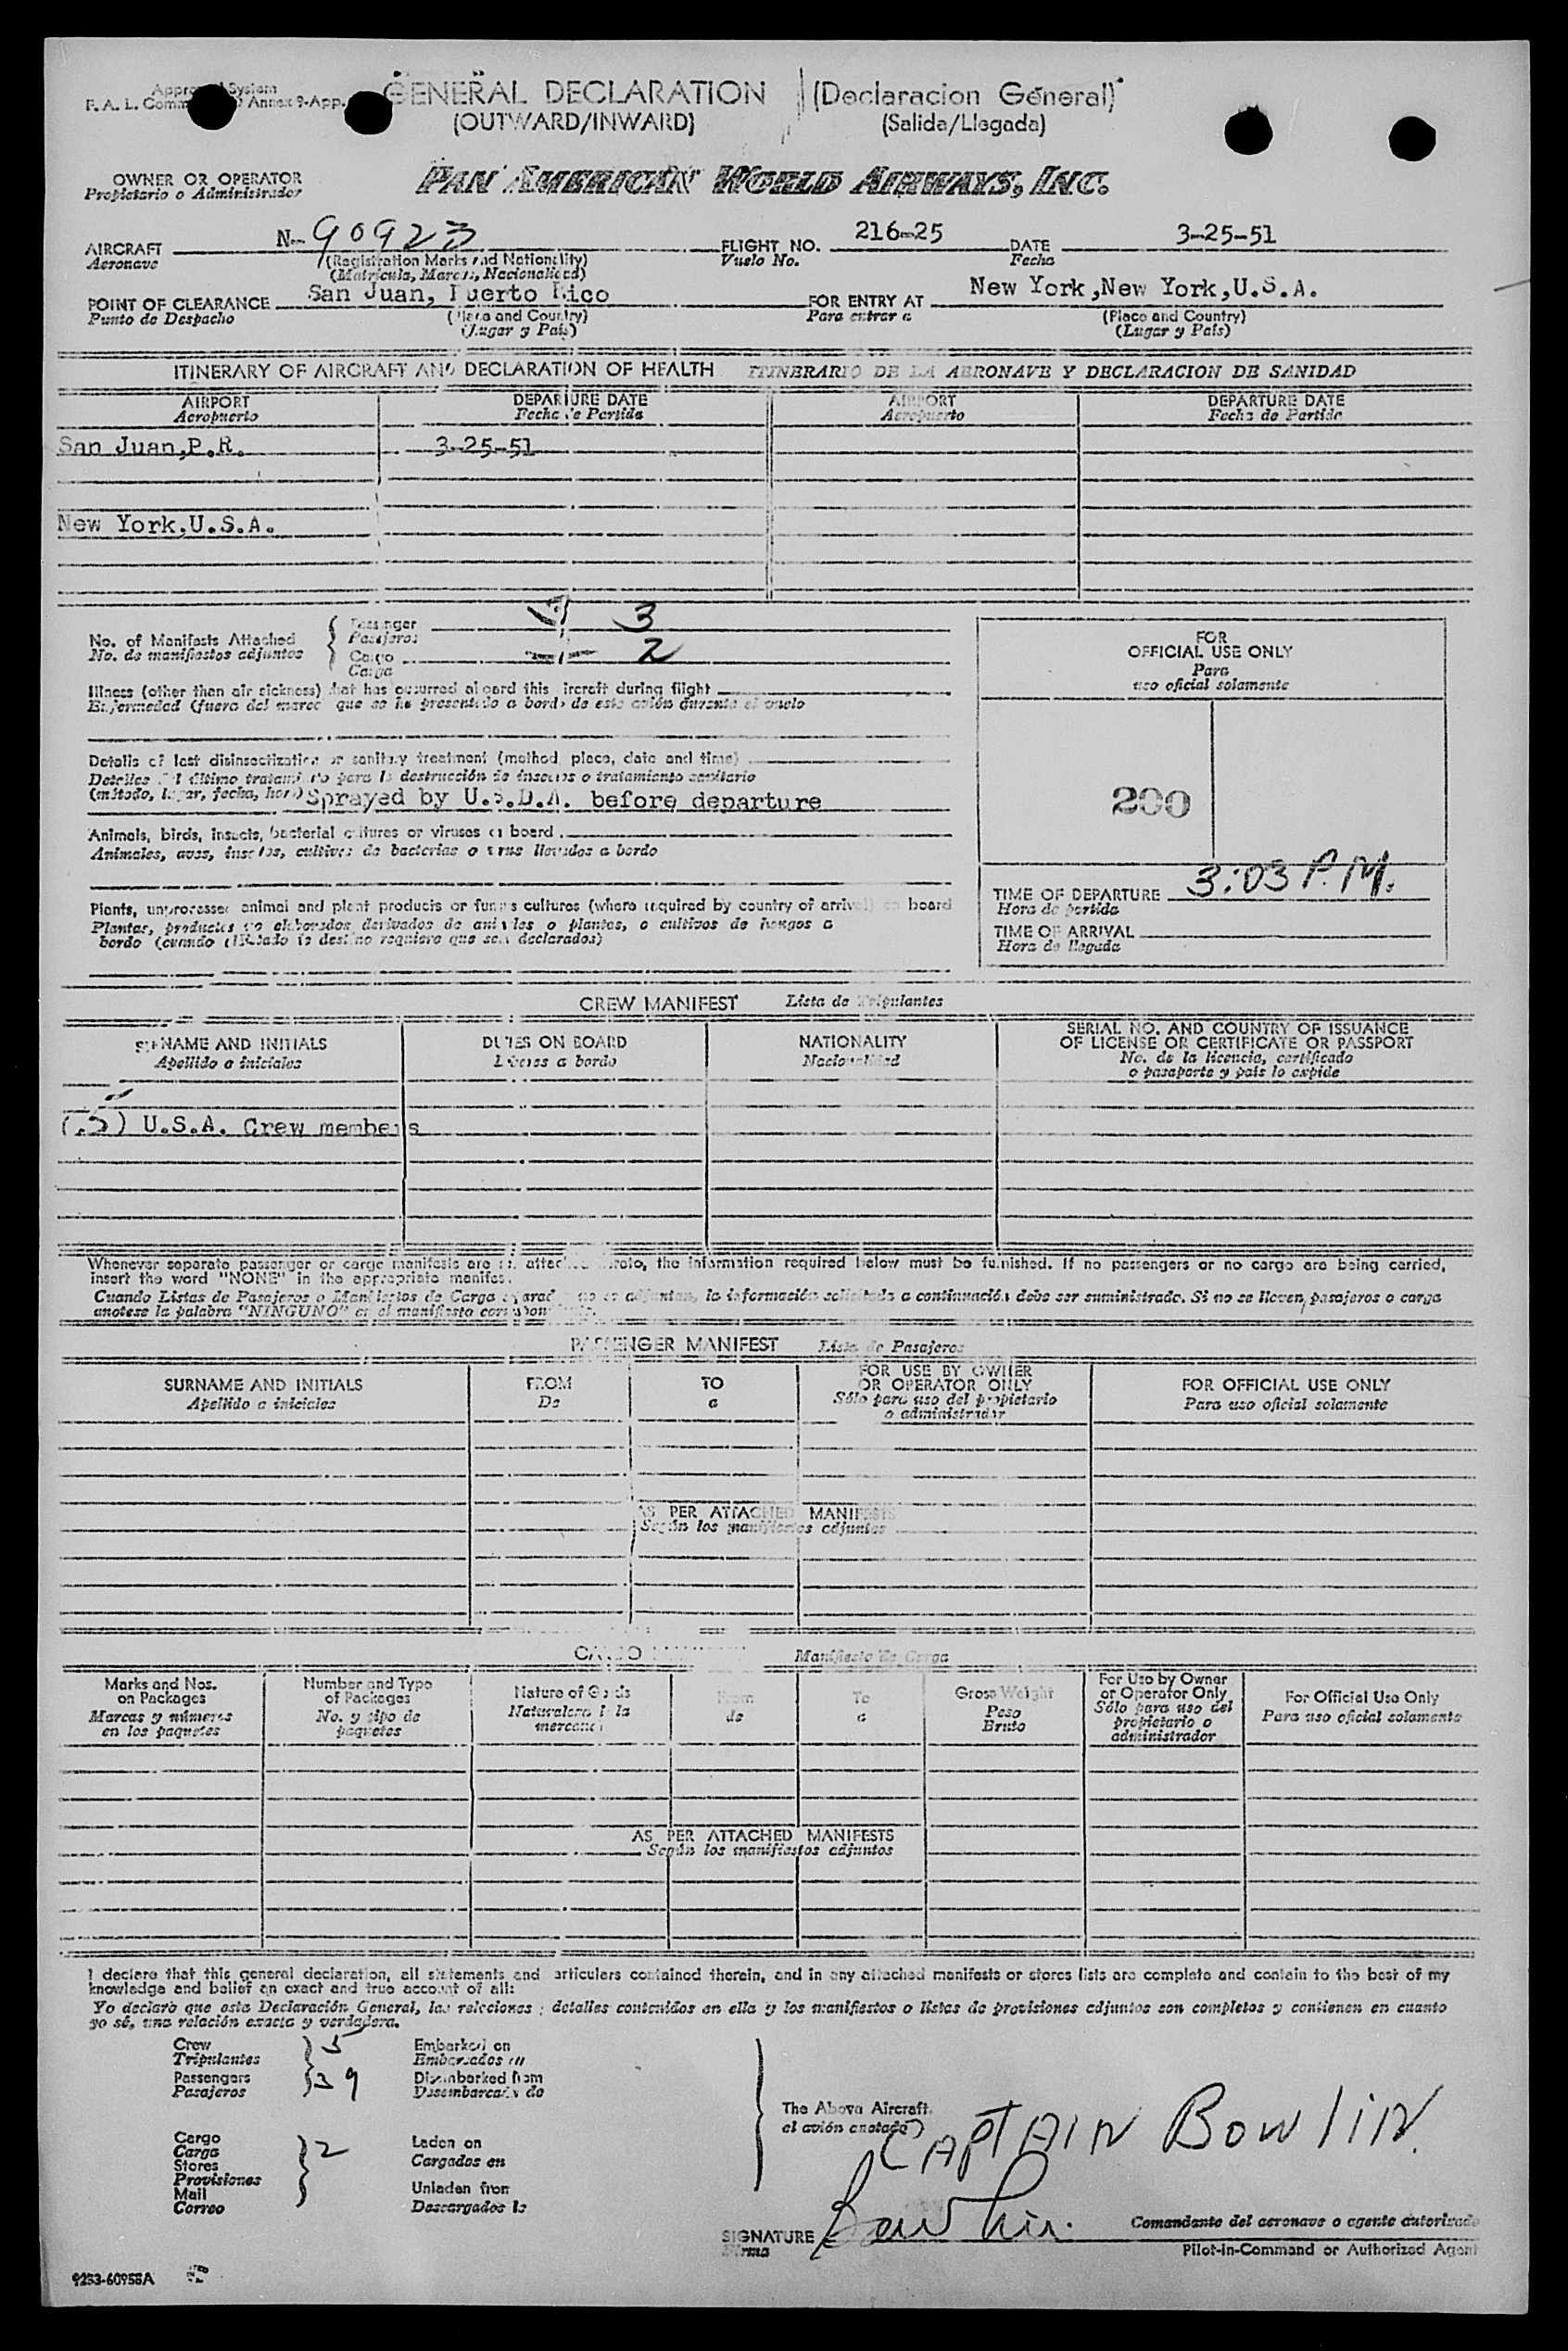 GENERAL DECLARATION (Declaracion General)
(OUTWARD/INWARD) (Salida/Llegada)
OWNER OR OPERATOR
Propietario o Administrador
PAN AMERICAN WORLD AIRWAYS, INC.
AIRCRAFT N-90923 FLIGHT NO. 216-25 DATE 3-25-51
Aeronave (Registration Marks and Nationality) Vuelo No. Fecha
(Matrícula, Marcas, Nacionalidad)
POINT OF CLEARANCE San Juan, Puerto Rico FOR ENTRY AT New York,New York,U.S.A.
Punto de Despacho (Place and Country) Para entrar a (Place and Country)
(Lugar y País) (Lugar y País)
ITINERARY OF AIRCRAFT AND DECLARATION OF HEALTH ITINERARIO DE LA AERONAVE Y DECLARACION DE SANIDAD
AIRPORT DEPARTURE DATE AIRPORT DEPARTURE DATE
Aeropuerto Fecha de Partida Aeropuerto Fecha de Partida
San Juan,P.R. 3-25-51
New York,U.S.A.
No. of Manifests Attached Passenger 3
No. de manifiestos adjuntos Pasajeros
Cargo 2
Carga
FOR
OFFICIAL USE ONLY
Para
uso oficial solamente
Illness (other than air sickness) that has occurred aboard this aircraft during flight
Enfermedad (fuera del mareo) que se ha presentado a bordo de este avión durante el vuelo
Details of last disinsectization or sanitary treatment (method, place, date and time)
Detalles del último tratamiento para la destrucción de insectos o tratamiento sanitario
(método, lugar, fecha, hora) Sprayed by U.S.D.A. before departure
200
Animals, birds, insects, bacterial cultures or viruses on board
Animales, aves, insectos, cultivos de bacterias o virus llevados a bordo
Plants, unprocessed animal and plant products or fungus cultures (where required by country of arrival) on board
Plantas, productos no elaborados derivados de animales o plantas, o cultivos de hongos a
bordo (cuando el Estado de destino requiere que sean declarados)
TIME OF DEPARTURE 3:03 P.M.
Hora de partida
TIME OF ARRIVAL
Hora de llegada
CREW MANIFEST Lista de Tripulantes
SURNAME AND INITIALS DUTIES ON BOARD NATIONALITY SERIAL NO. AND COUNTRY OF ISSUANCE
OF LICENSE OR CERTIFICATE OR PASSPORT
Apellido e iniciales Labores a bordo Nacionalidad No. de la licencia, certificado
o pasaporte y país lo expide
(5) U.S.A. Crew members
Whenever separate passenger or cargo manifests are not attached hereto, the information required below must be furnished. If no passengers or no cargo are being carried,
insert the word "NONE" in the appropriate manifest.
Cuando Listas de Pasajeros o Manifiestos de Carga separados no se adjuntan, la información solicitada a continuación debe ser suministrada. Si no se llevan pasajeros o carga
anotese la palabra "NINGUNO" en el manifiesto correspondiente.
PASSENGER MANIFEST Lista de Pasajeros
SURNAME AND INITIALS FROM TO FOR USE BY OWNER
OR OPERATOR ONLY FOR OFFICIAL USE ONLY
Apellido e iniciales De a Sólo para uso del propietario
o administrador Para uso oficial solamente
AS PER ATTACHED MANIFESTS
Según los manifiestos adjuntos
CARGO Manifiesto de Carga
Marks and Nos.
on Packages
Marcas y números
en los paquetes
Number and Type
of Packages
No. y tipo de
paquetes
Nature of Goods
Naturaleza de la
mercancía
From
de
To
a
Gross Weight
Peso
Bruto
For Use by Owner
or Operator Only
Sólo para uso del
propietario o
administrador
For Official Use Only
Para uso oficial solamente
AS PER ATTACHED MANIFESTS
Según los manifiestos adjuntos
I declare that this general declaration, all statements and particulars contained therein, and in any attached manifests or stores lists are complete and contain to the best of my
knowledge and belief an exact and true account of all:
Yo declaro que esta Declaración General, las relaciones y detalles contenidos en ella y los manifiestos o listas de provisiones adjuntos son completos y contienen en cuanto
yo sé, una relación exacta y verdadera.
Crew 5 Embarked on
Tripulantes Embarcados en
Passengers 39 Disembarked from
Pasajeros Desembarcados de
The Above Aircraft
el avión anotado
CAPTAIN BOWLIN.
Cargo 2 Laden on
Carga Cargados en
Stores
Provisiones
Mail Unladen from
Correo Descargados de
SIGNATURE Bowlin.
Firma
Comandante del aeronave o agente autorizado
Pilot-in-Command or Authorized Agent
9253-60955A